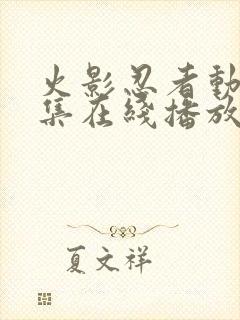 火影忍者動
集在綫播放
夏文祥